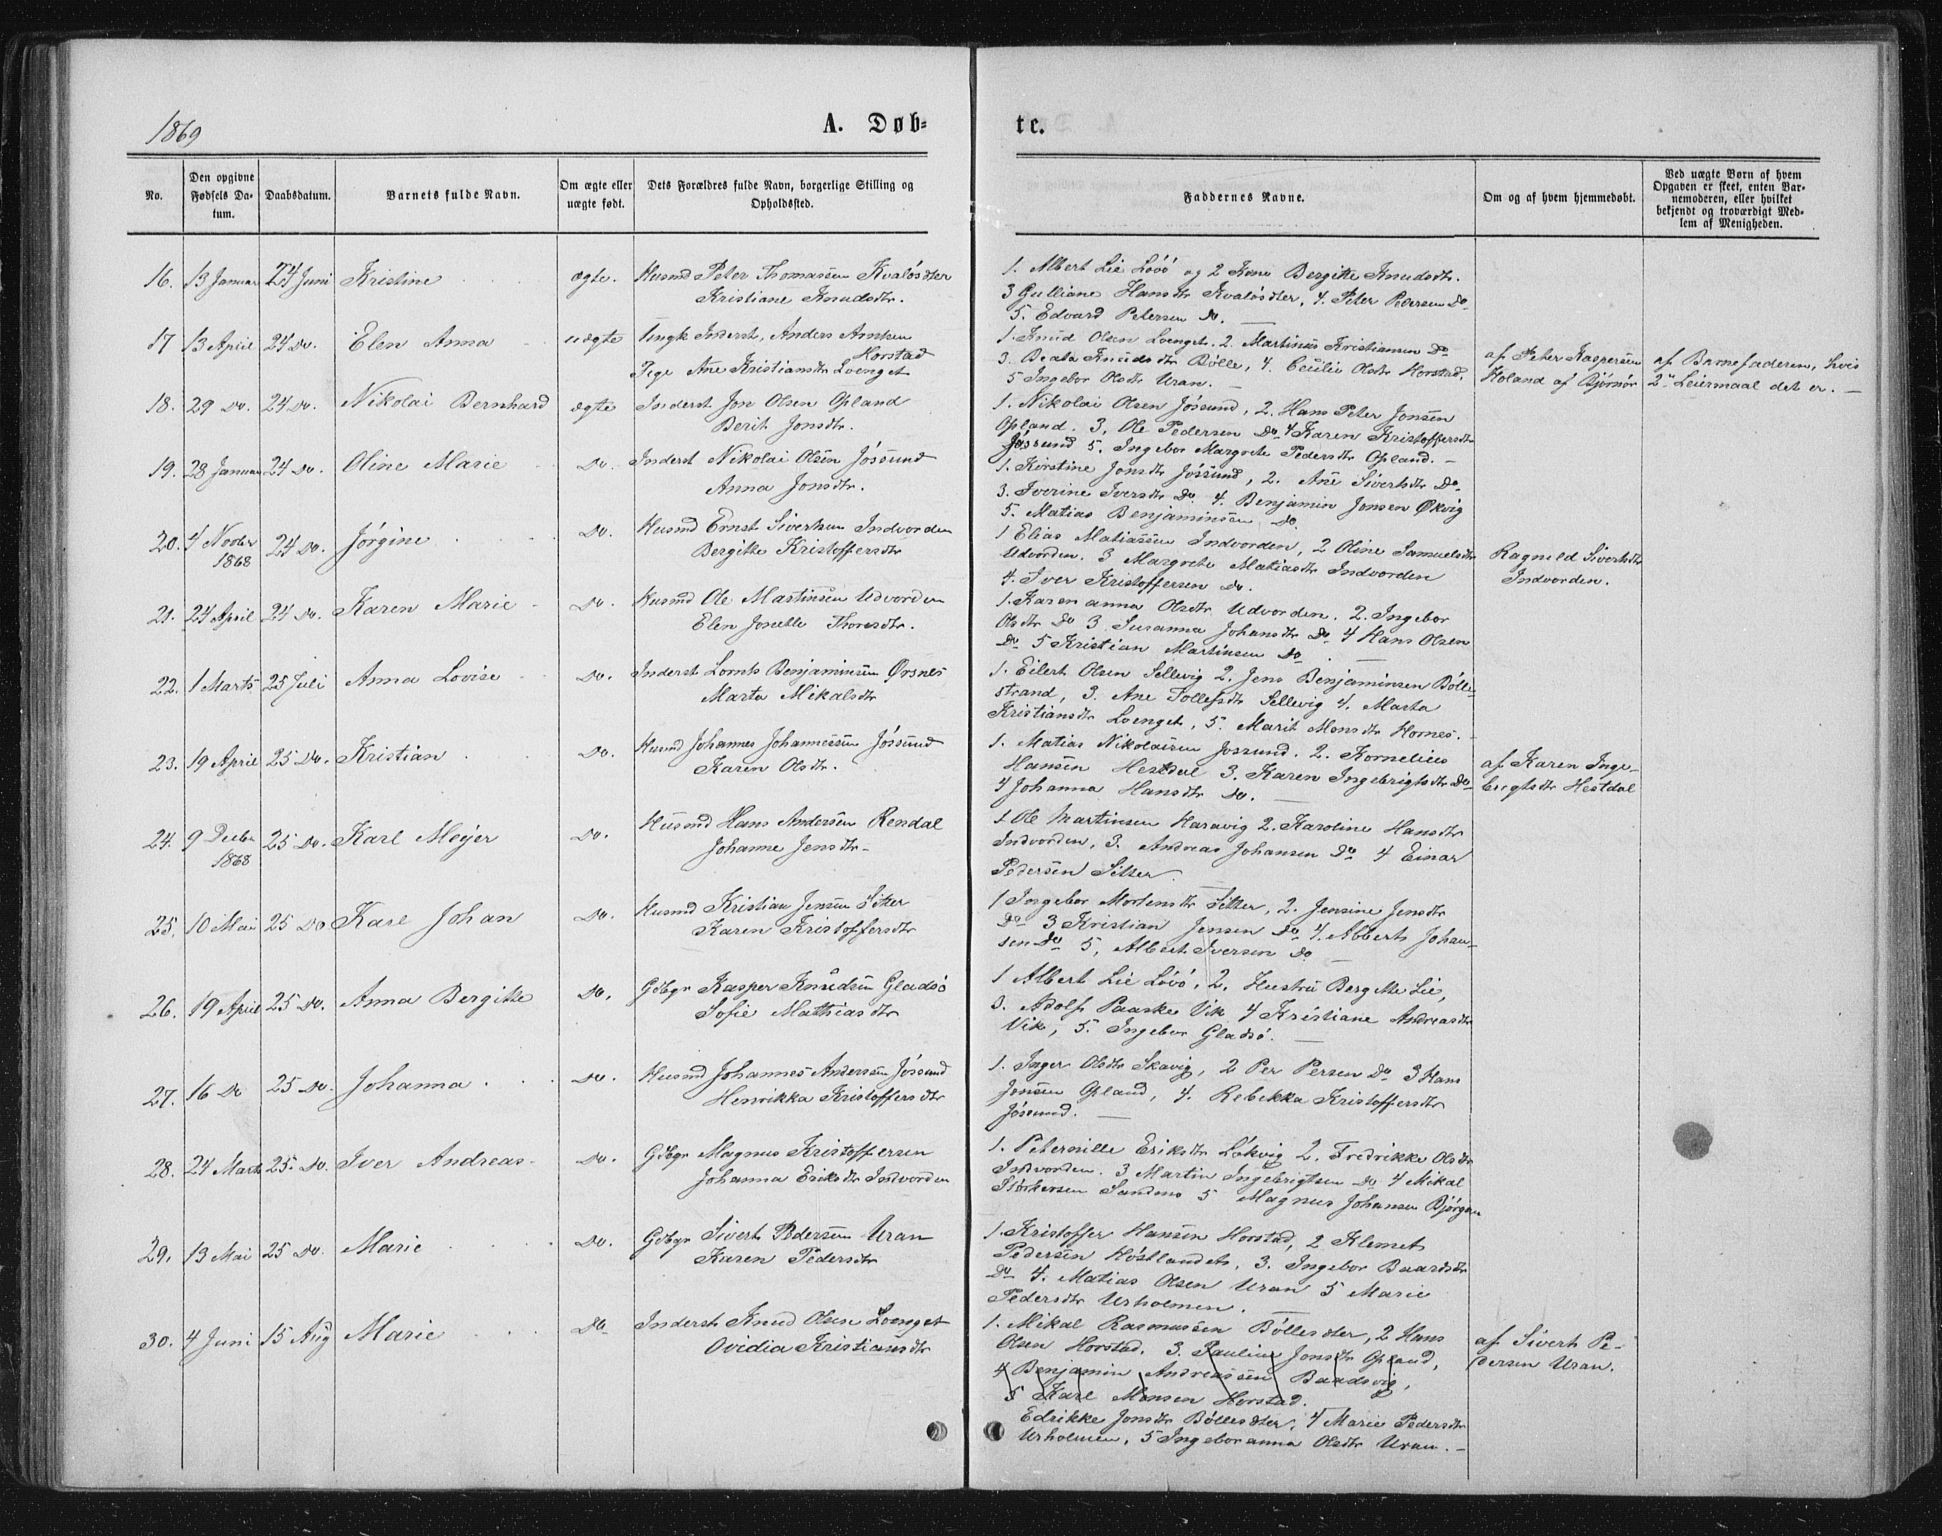 1869
A. Døb-
te.
No.
Den opgivne Fødsels Da-
tum.
Daabsdatum.
Barnets fulde Navn.
Om ægte eller
uægte født.
Dets Forældres fulde Navn, borgerlige Stilling og
Opholdssted.
Faddernes Navne.
Om og af hvem hjemmedøbt.
Ved uægte Børn af hvem
Opgaven er skeet, enten Bar-
nemoderen, eller hvilket
bekjendt og troværdigt Med-
lem af Menigheden.
16. 13 Januar 24 Juni Kristine ægte. Husmd Peter Thomassen Kvaløsdter
Kristiane Knudsdtr.
1. Albert Lie Løvø og 2 Kone Bergitte Knudsdtr.
3 Gulliane Hansdtr Kvaløsdter, 4. Peter Pedersen Do
5. Edvard Petersen Do.
17 13 April 24 Do. Elen Anna uægte Ungk Inderst, Anders Arntsen
Horstad
Pige Ane Kristiansdtr Loenget
1. Knud Olsen Loenget. 2. Martinus Kristiansen Do
3. Beata Knudsdtr Bølle, 4. Cecilie Olsdtr Horstad,
5 Ingebor Olsdtr Uran.
af Peter Kaspersen
Holand af Bjørnør
af Barnefaderen, hvis
2det Leiermaal det er.
18. 29 Do. 24 Do. Nikolai Bernhard ægte Inderst Jon Olsen Opland
Berit Jonsdtr.
1. Nikolai Olsen Jøssund, 2. Hans Peter Jonsen
Opland. 3. Ole Pedersen Do 4 Karen Kristoffersdtr
Jøssund 5. Ingebor Margrete Pedersdtr Opland.
19. 28 Januar 24 Do. Oline Marie Do. Inderst Nikolai Olsen Jøssund
Anna Jonsdtr.
1. Kirstine Jonsdtr Jøssund, 2. Ane Sivertsdtr Do
3. Iverine Iversdtr Do. 4. Benjamin Jonsen Økvig
5. Matias Benjaminsen Do
20. 4 Novber
1868 24 Do. Jørgine Do. Husmd Ernst Sivertsen Indvorden
Bergitte Kristoffersdtr
1 Elias Matiassen Indvorden, 2 Oline Samuelsdtr
Udvorden. 3 Margrete Matiasdtr Indvorden
4. Iver Kristoffersen Do.
Ragnild Sivertsdtr
Indvorden.
21. 24 April 24 Do. Karen Marie Do. Husmd Ole Martinsen Udvorden
Elen Thoresdtr.
1. Karenanna Olsdtr Udvorden. 2. Ingebor
Olsdtr Do 3 Susanna Johansdtr Do 4 Hans Olsen
Do 5 Kristian Martinsen Do.
22. 1 Marts 25 Juli Anna Lovise Do. Inderst Lornts Benjaminsen Ørsnes
Marta Mikalsdtr
1. Eilert Olsen Sellevig 2. Jens Benjaminsen Bølle-
strand, 3. Ane Tollefsdtr Sellevig 4. Marta
Kristiansdtr Loenget, 5. Marit Monsdtr Hornes.
23. 19 April 25 Do. Kristian Do. Husmd Johannes Johannessen Jøssund
Karen Olsdtr.
1. Matias Nikolaisen Jossund. 2. Kornelius
Hansen Hestdal 3. Karen Ingebrigtsdtr Do
4 Johanna Hansdtr Do.
af Karen Inge-
brigtsdtr Hestdal
24. 9 Decbr
1868 25 Do. Karl Meyer Do. Husmd Hans Andersen Rendal
Johanne Jensdtr
1. Ole Martinsen Haravig 2. Karoline Hansdtr
Indvorden, 3. Andreas Johansen Do 4 Einar
Pedersen Sitter.
25. 10 Mai 25 Do Karl Johan Do. Husmd Kristian Jensen Sitter
Karen Kristoffersdtr
1 Ingebor Mortensdtr Sitter, 2. Jensine Jensdtr
Do 3 Kristian Jensen Do 4. Albert Johan-
sen Do 5, Albert Iversen Do
26. 19 April 25 Do. Anna Bergitte Do. Gdbgr Kasper Knudsen Gladsø
Sofie Mathiasdtr
1 Albert Lie Løvø, 2. Hustru Bergitte Lie,
3. Adolf Paaske Vik 4 Kristiane Andreasdtr
Vik, 5. Ingebor Gladsø.
27. 16 Do 25 Do. Johanna Do. Husmd Johannes Anderssen Jøssund
Henrikka Kristoffersdtr
1. Inger Olsdtr Skavig, 2 Per Persen Do 3 Hans
Jonsen Opland, 4. Rebekka Kristoffersdtr
Jøssund.
28. 24 Marts 25 Do. Iver Andreas Do. Gdbgr Magnus Kristoffersen
Johanna Eriksdtr Indvorden
1. Peternille Eriksdtr Løkvig 2. Fredrikke Olsdtr
Indvorden. 3 Martin Ingebrigtsen Do 4 Mikal
Størkersen Sandnes 5 Magnus Johansen Bjørgan
29. 13 Mai 25 Do Marie Do. Gdbgr Sivert Pedersen Uran
Karen Pedersdtr
1. Kristoffer Hansen Horstad, 2 Klemet
Pedersen Høstlandet, 3. Ingebor Baardsdtr
Do 4. Matias Olsen Uran 5 Marie
Pedersdtr Urholmen.
30. 4 Juni 15 Aug Marie Do Inderst Knud Olsen Loenget
Ovidia Kristiansdtr
1. Mikal Rasmussen Bøllesdter, 2 Hans
Olsen Horstad. 3. Pauline Jonsdtr Opland,
4 Benjamin Andreassen Baadsvig,
5 Karl Monsen Horstad.
Edrikke Jonsdtr Bøllesdter, 4 Marie Pedersdtr
Urholmen, 5 Ingeboranna Olsdtr Uran.
af Sivert Pe-
dersen Uran.